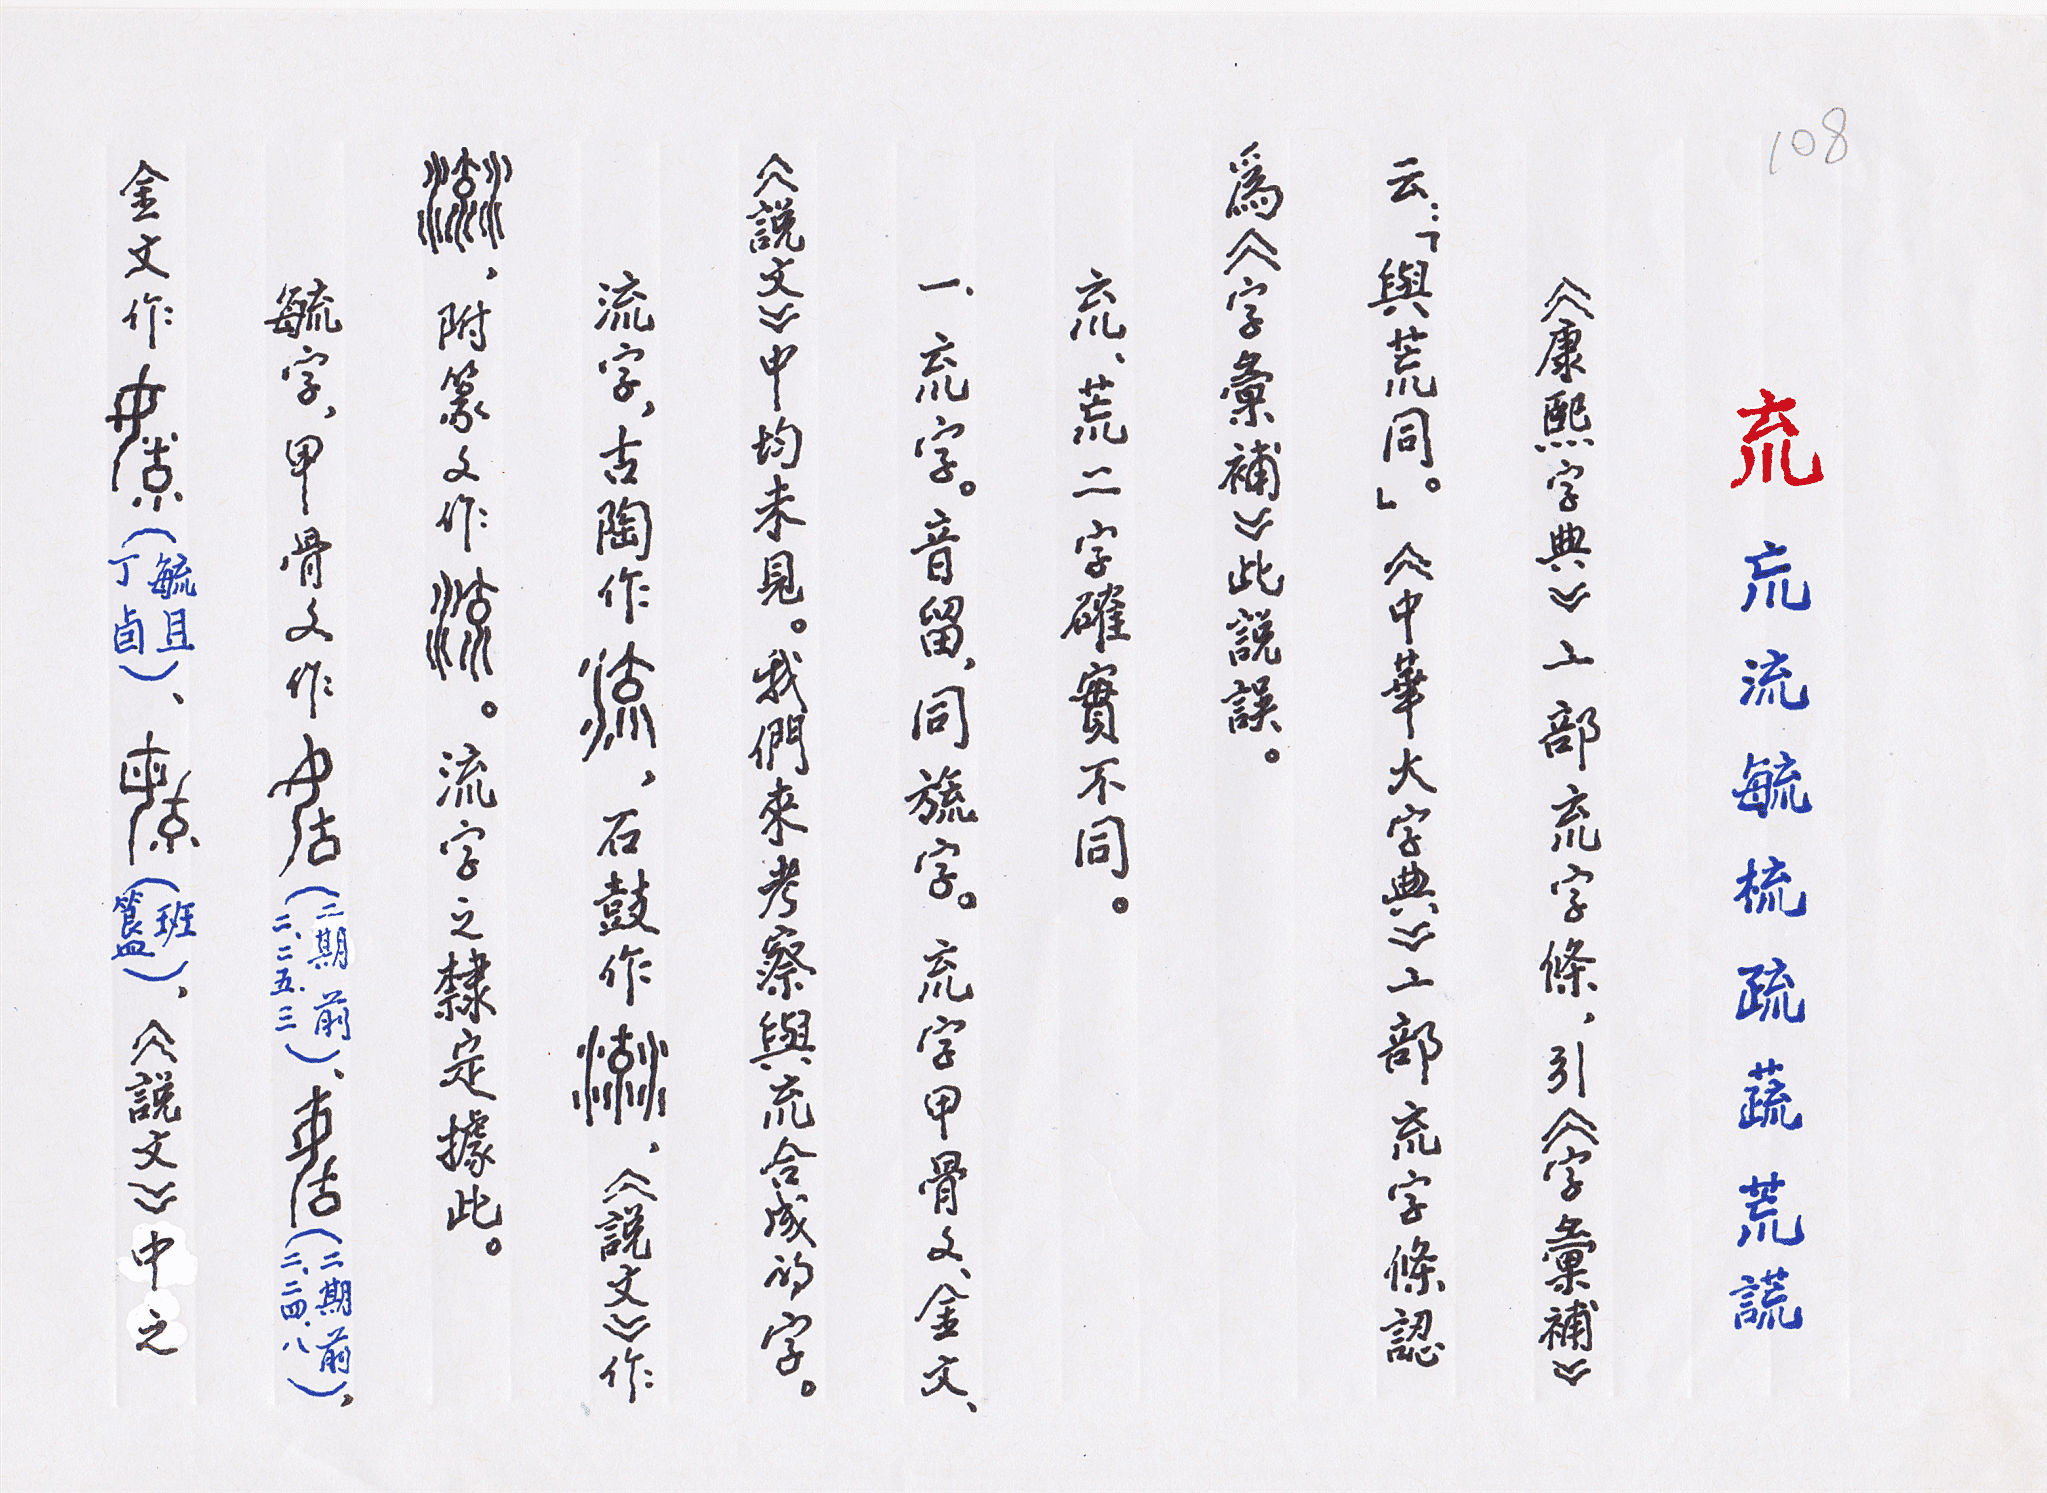 108
㐬 巟 流 毓 梳 疏 蔬 荒 謊
《康熙字典》亠部㐬字條，引《字彙補》
云：「與荒同。」《中華大字典》亠部㐬字條認
爲《字彙補》此說誤。
㐬、荒二字確實不同。
一、㐬字。音留，同旒字。㐬字甲骨文、金文、
《說文》中均未見。我們來考察與㐬合成的字。
流字，古陶作，石鼓作，《說文》作
，附篆文作。流字之隸定據此。
毓字，甲骨文作（二期前二．二五．三）、（二期前二．二四．八），
金文作（毓且丁卣）、（班簋），《說文》中之